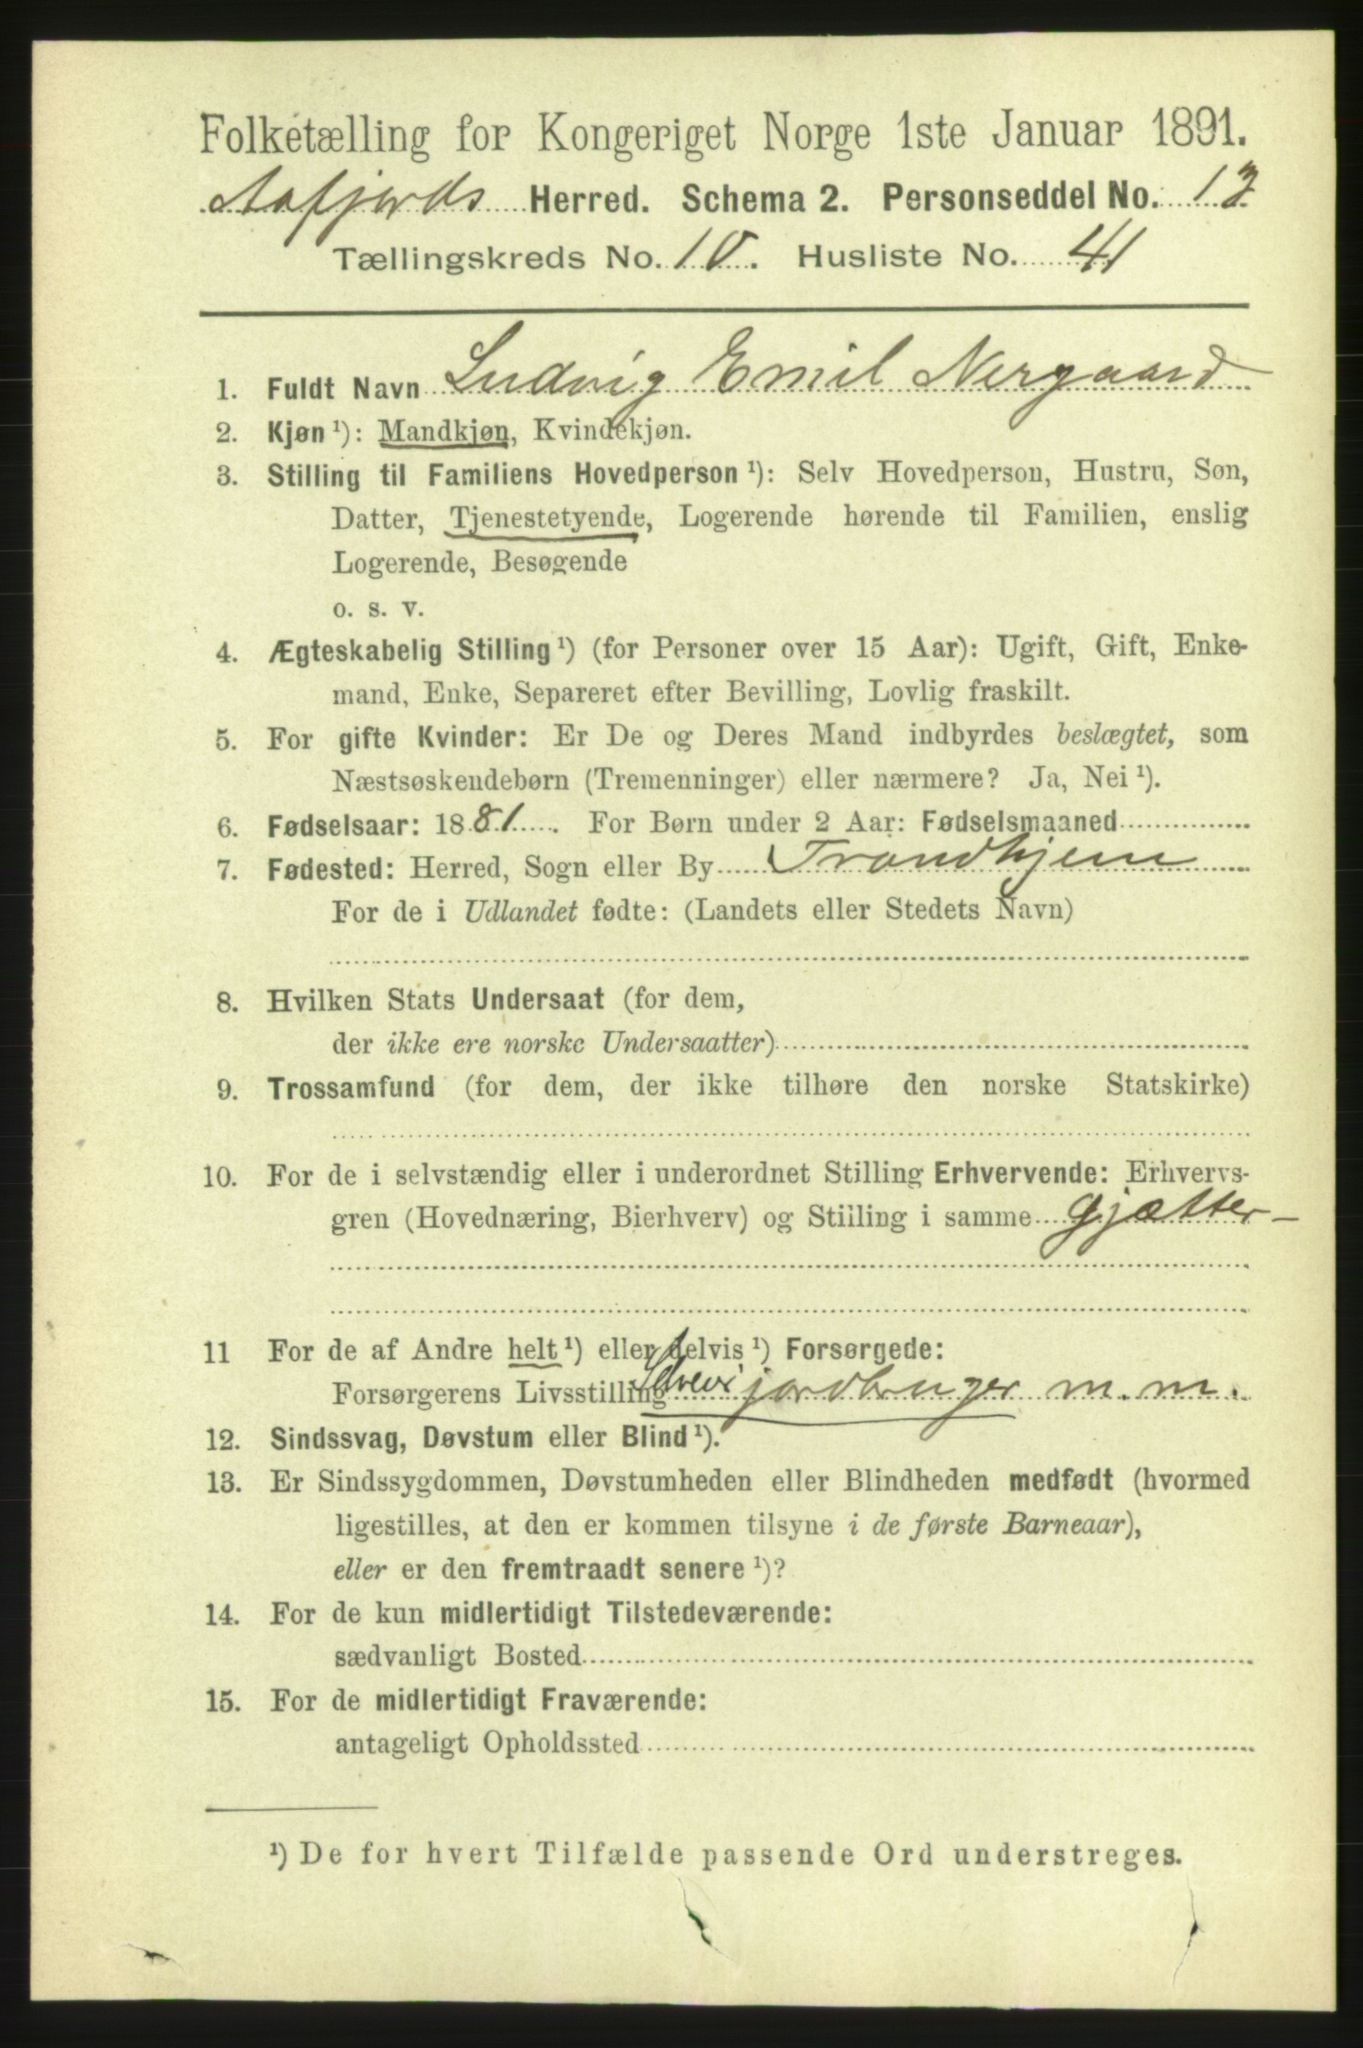 Folketælling for Kongeriget Norge 1ste Januar 1891.
Aafjords Herred. Schema 2. Personseddel No. 13
Tællingskreds No. 10. Husliste No. 41
1. Fuldt Navn Ludvig Emil Nergaard
2. Kjøn ¹): Mandkjøn, Kvindekjøn.
3. Stilling til Familiens Hovedperson ¹): Selv Hovedperson, Hustru, Søn,
Datter, Tjenestetyende, Logerende hørende til Familien, enslig
Logerende, Besøgende
o. s. v.
4. Ægteskabelig Stilling ¹) (for Personer over 15 Aar): Ugift, Gift, Enke-
mand, Enke, Separeret efter Bevilling, Lovlig fraskilt.
5. For gifte Kvinder: Er De og Deres Mand indbyrdes beslægtet, som
Næstsøskendebørn (Tremenninger) eller nærmere? Ja, Nei ¹).
6. Fødselsaar: 1881. For Børn under 2 Aar: Fødselsmaaned
7. Fødested: Herred, Sogn eller By Trondhjem
For de i Udlandet fødte: (Landets eller Stedets Navn)
8. Hvilken Stats Undersaat (for dem,
der ikke ere norske Undersaatter)
9. Trossamfund (for dem, der ikke tilhøre den norske Statskirke)
10. For de i selvstændig eller i underordnet Stilling Erhvervende: Erhvervs-
gren (Hovednæring, Bierhverv) og Stilling i samme Gjætter
11 For de af Andre helt ¹) eller delvis ¹) Forsørgede:
Forsørgerens Livsstilling jordbruger m. m.
12. Sindssvag, Døvstum eller Blind ¹).
13. Er Sindssygdommen, Døvstumheden eller Blindheden medfødt (hvormed
ligestilles, at den er kommen tilsyne i de første Barneaar),
eller er den fremtraadt senere ¹)?
14. For de kun midlertidigt Tilstedeværende:
sædvanligt Bosted
15. For de midlertidigt Fraværende:
antageligt Opholdssted
¹) De for hvert Tilfælde passende Ord understreges.